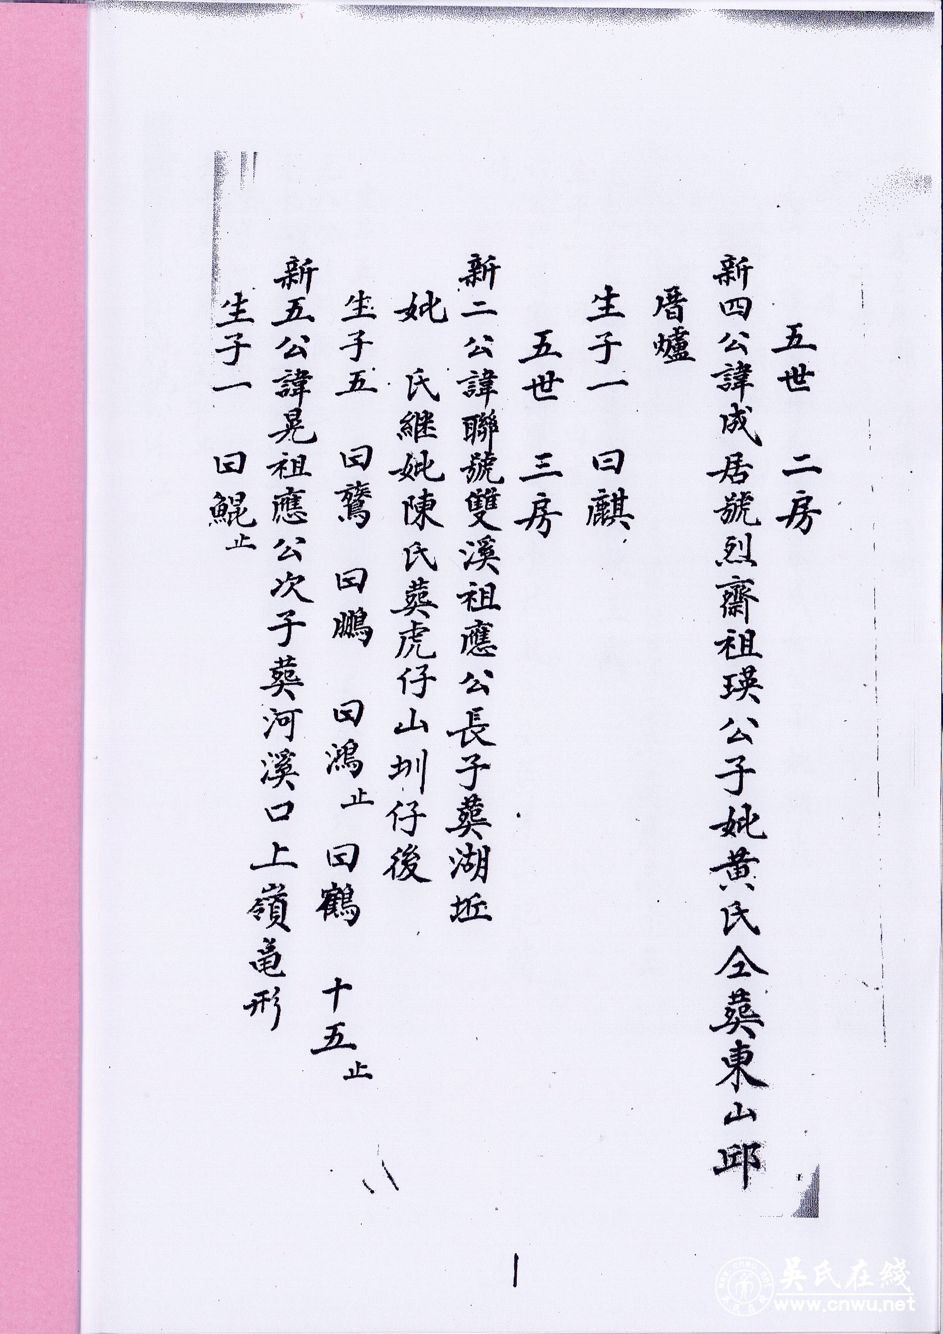 五世 二房
新四公諱成居號烈齋祖瑛公子妣黃氏仝葬東山邱
厝爐
生子一 曰麒
五世 三房
新二公諱聯號雙溪祖應公長子葬湖坵
妣 氏継妣陳氏葬虎仔山圳仔後
生子五 曰鶩 曰鵬 曰鴻止 曰鶴 十五止
新五公諱晃祖應公次子葬河溪口上嶺亀形
生子一 曰鯤止
1
吴氏在线
www.cnwu.net